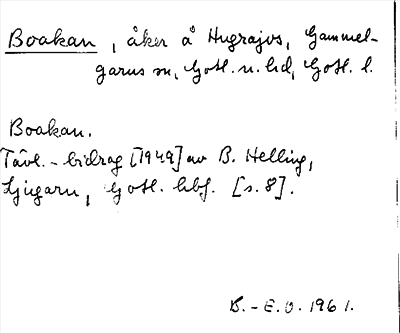 Boakan, åker å Hugrajvs, Gammel-
garns sn, Gotl. n. hd, Gotl. l.
Boakan.
Tävl.-bidrag [1949] av B. Helling,
Ljugarn, Gotl. hbf. [s. 8].
B.-E.O. 1961.